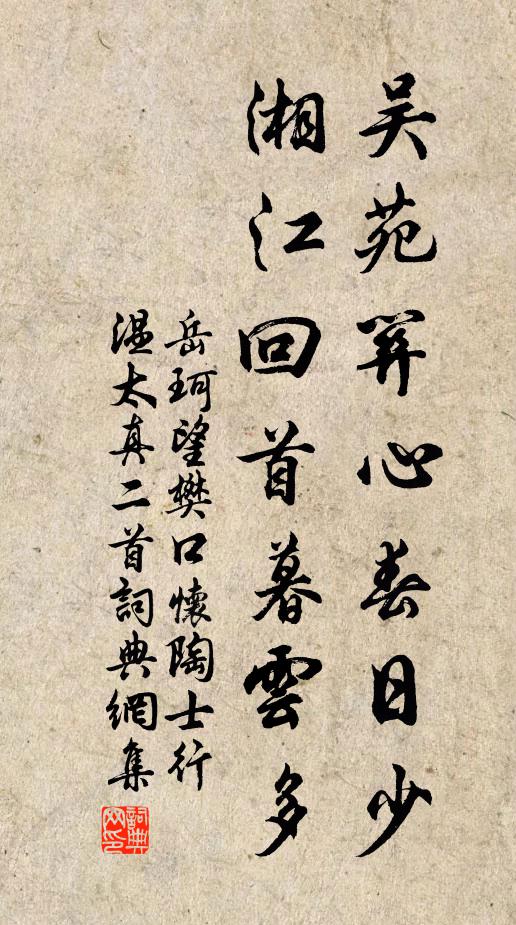 吴苑關心春日少
湘江回首暮雲多
岳珂望樊口懷陶士行
温太真二首詞典網集
詞典
网印